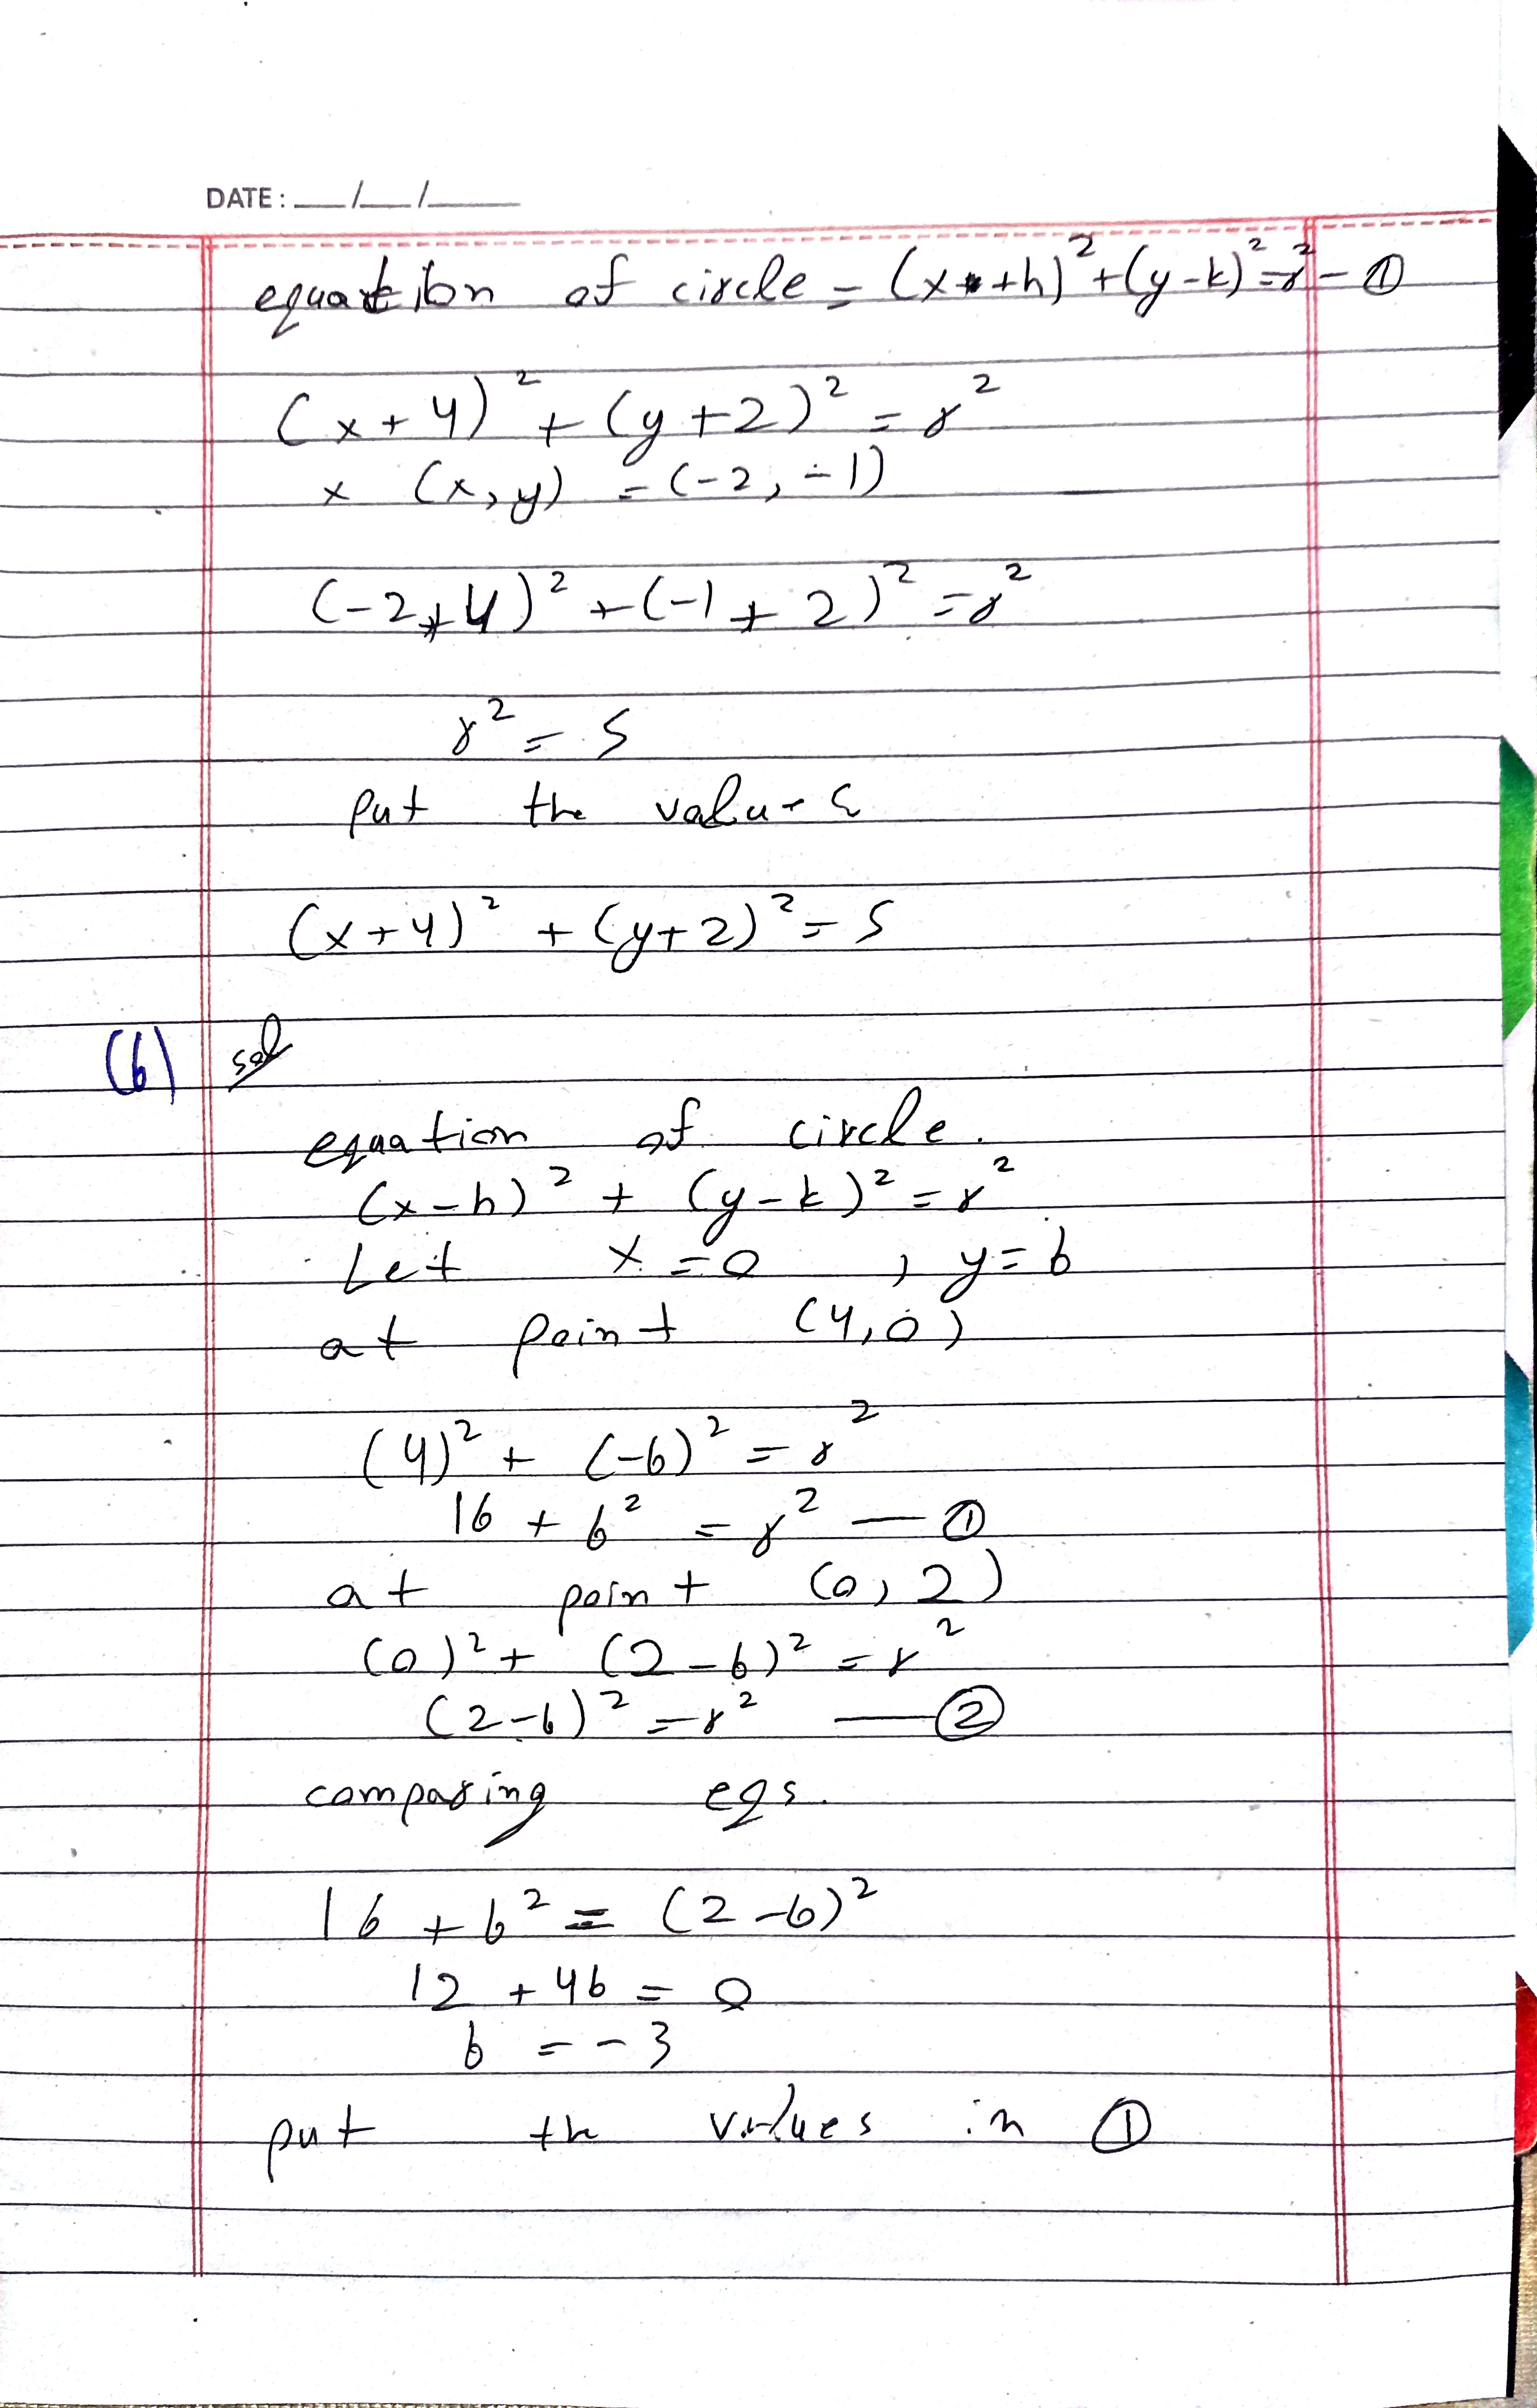 DATE: __/__/____
equation of circle = (x+h)² + (y-k)² = r² - ①
(x+4)² + (y+2)² = r²
x (x,y) = (-2, -1)
(-2+4)² + (-1+2)² = r²
r² = 5
put the values
(x+4)² + (y+2)² = 5
(6) sol
equation of circle.
(x-h)² + (y-k)² = r²
Let x = 0 , y = b
at point (4,0)
(4)² + (-b)² = r²
16 + b² = r² — ①
at point (0,2)
(0)² + (2-b)² = r²
(2-b)² = r² — ②
comparing eqs.
16 + b² = (2-b)²
12 + 4b = 0
b = -3
put the values in ①